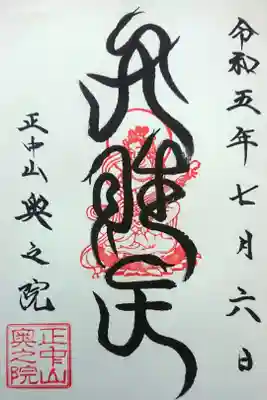 令和五年七月六日
弁財天
正中山 奥之院
正中山
奥之院